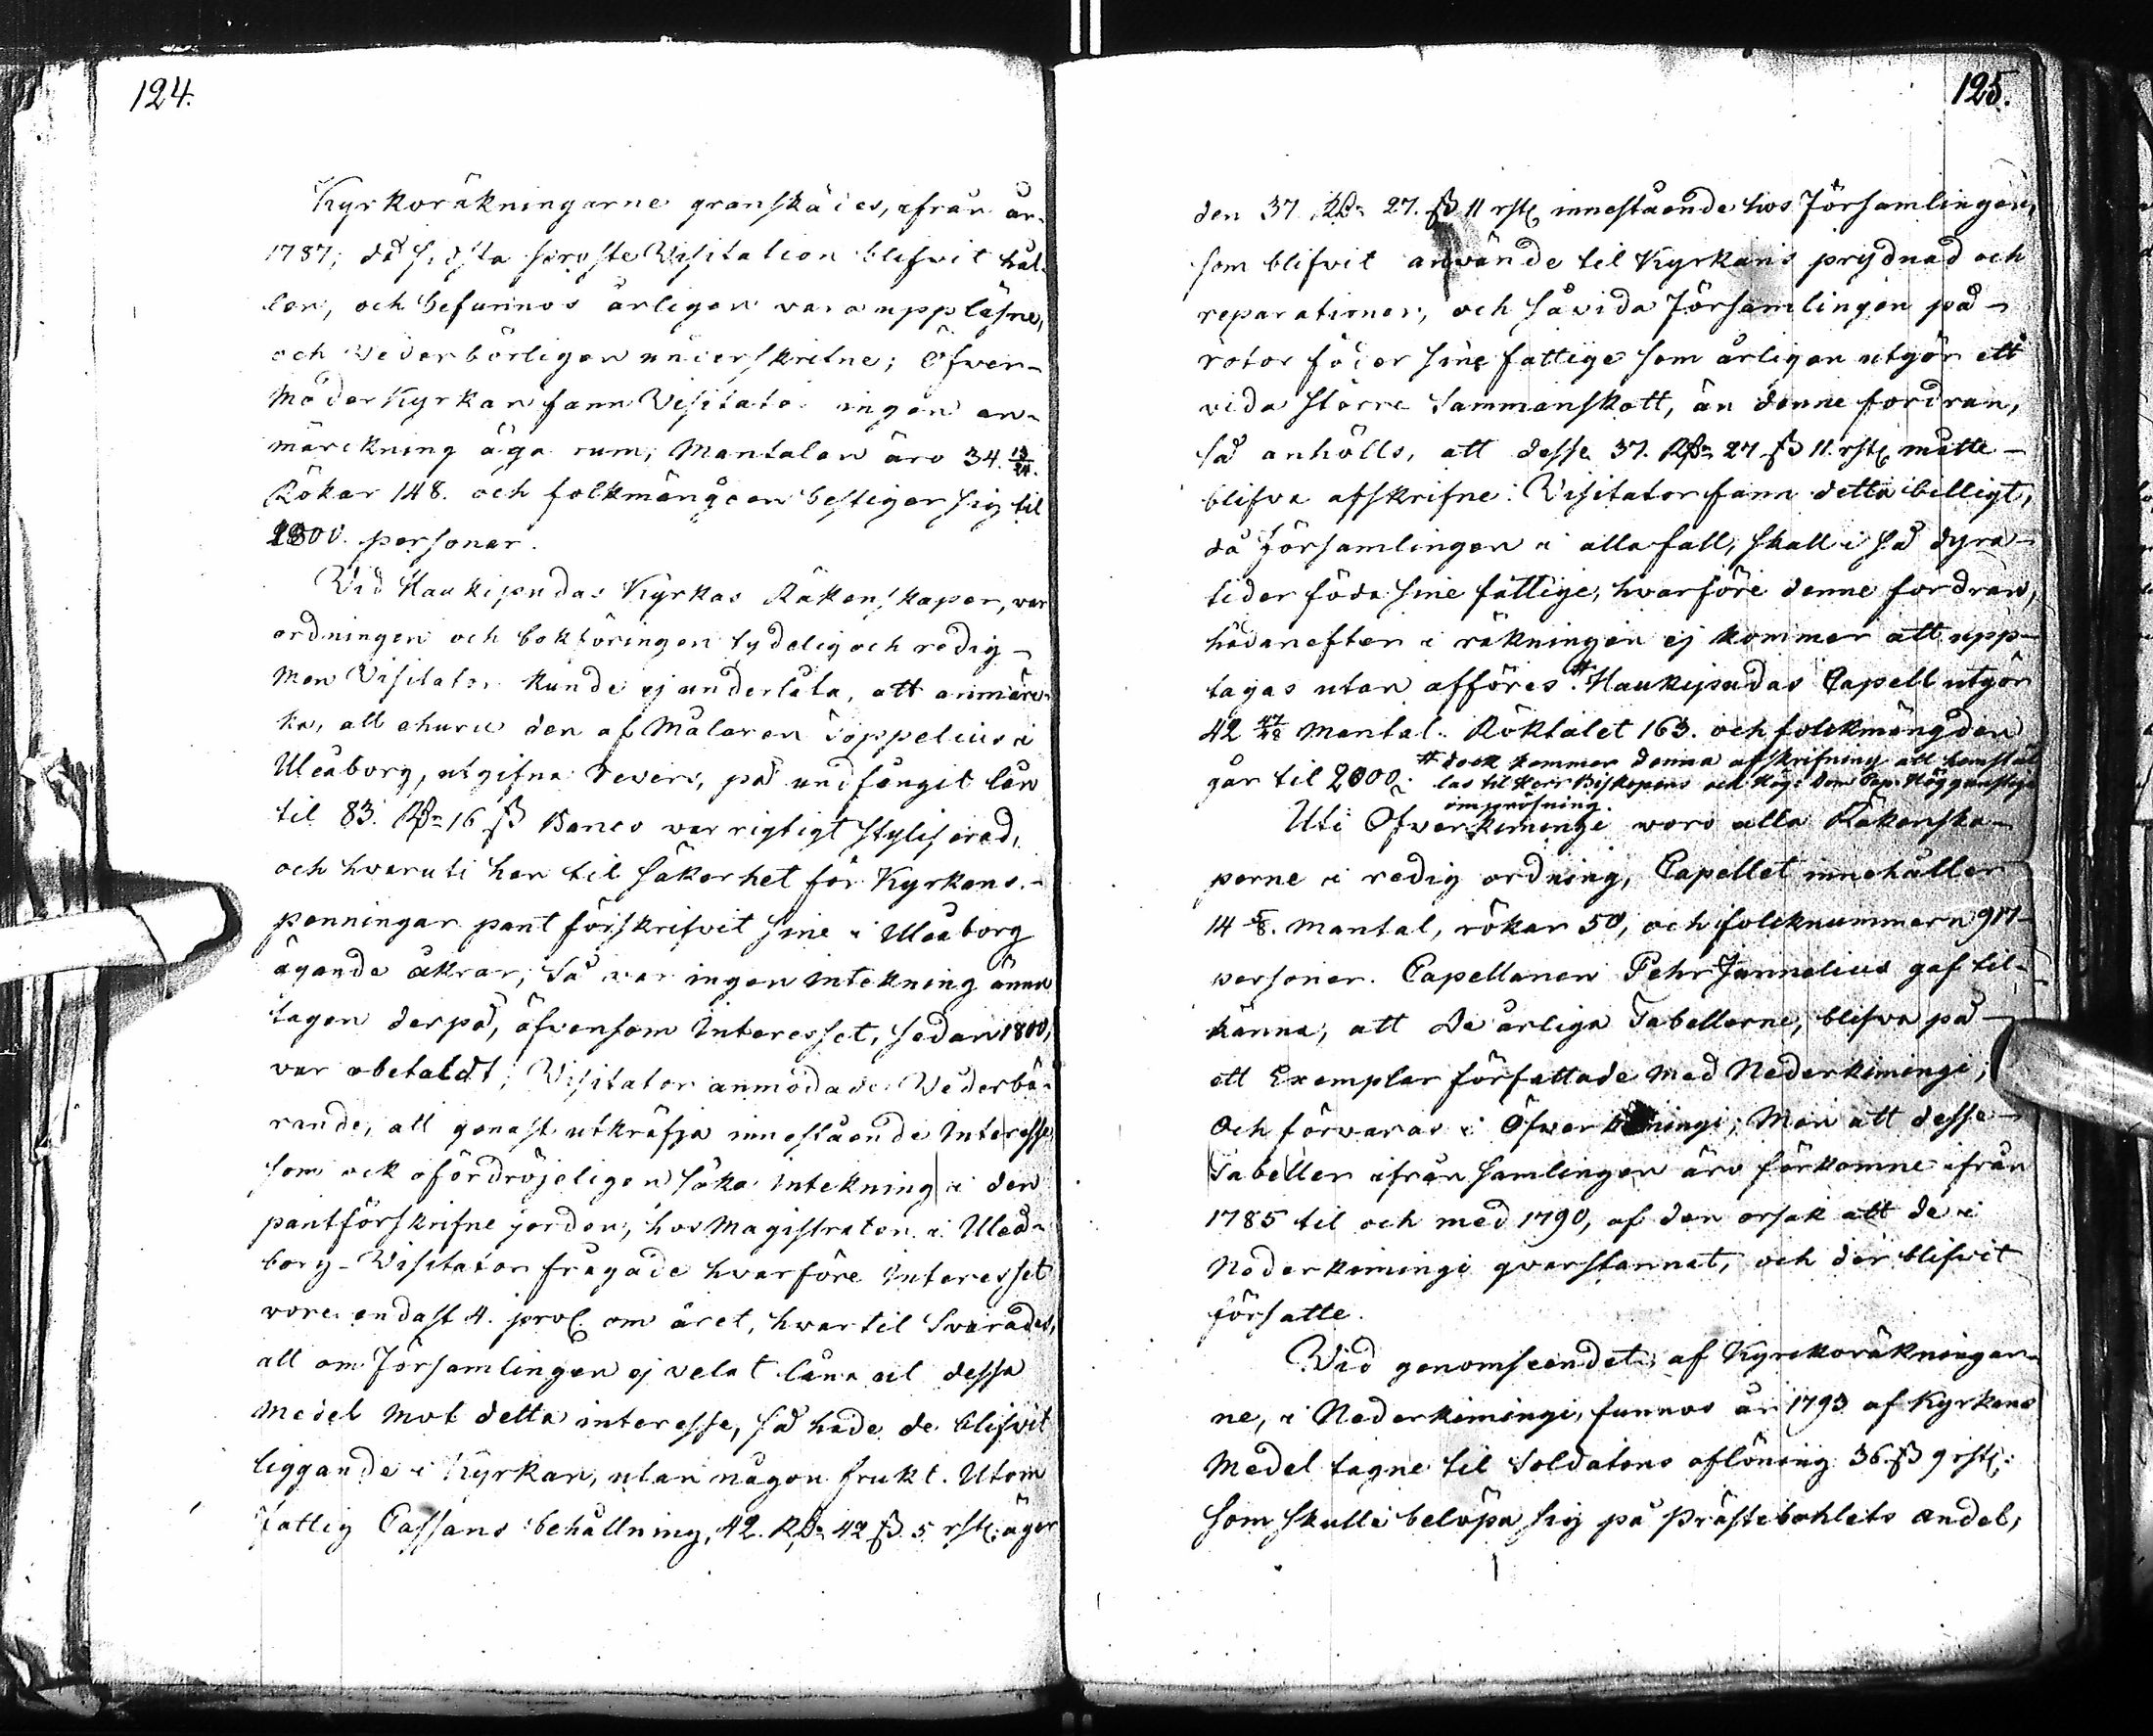 124.
Kyrkoräkningarne granskades, ifrån år
1787, då sidsta Proste Visitation blifvit hål-
len, och befunnos årligen vara uppläsne,
och vederbörligen underskrifne; Öfver
Moder Kyrkan fann Visitator ingen an-
märckning äga rum; Mantalen äro 34. 13/24.
Rökar 148. och folkmängden bestiger sig til
personer.
Vid Haukipudas Kyrkas Räkenskaper, var
ordningen och bokföringen tydelig och redig
Men Visitator kunde ej underlåta, att anmärc-
ka, att ehuru den af Målaren Toppelius i
Uleåborg, utgifna Revers, på undfångit lån
til 83. Rdr 16 ß Banco var rigtigt styliserad,
och hvaruti han til säkerhet för Kyrkans
penningar pant förskrifvit sine i Uleåborg
ägande åkrar, Så var ingen intekning ännu
tagen derpå, äfvensom Interesset, sedan 1800,
var obetaldt; Visitator anmodade Vederbö-
rande, att genast utkräfja innestående Interesse,
som ock ofördröjeligen söka intekning i den
pantförskrifne jorden, hos Magistraten i Uleå-
borg - Visitator frågade hvarföre Interesset
vore endast 4. proC. om året, hvartil Svarades,
att om Församlingen ej velat låna ut dessa
Medel mot detta interesse, så hade de blifvit
liggande i Kyrkan, utan någon frukt. Utom
Fattig Cassans behållning, 42. Rdr 42 ß. 5 rst. äger
125.
den 37 Rdr 27. ß 11 rst. innestående hos Församlingen,
som blifvit använde til Kyrkans prydnad och
reparationer, och såvida Församlingen på
rotor föder sine fattige som årligen utgör ett
vida större Sammanskott, än denne fordran,
så anhölls, att desse 37. Rdr 27 ß 11. rst. måtte
blifva afskrifne: Visitator fann detta billigt,
då Församlingen i alla fall, skall i så dyra
tider föda sine fattige, hvarföre denne fordran,
hädanefter i räkningen ej kommer att upp-
tagas utan afföres. # Haukipudas Capell utgör
42 47/48 Mantal. Röktalet 163. och folckmängden
går til 2000.
# dock kommer denna afskrifning att hemstäl-
las til Herr Biskopens och Hög: Dom Cap. Höggunstiga
ompröfning.
Uti Öfverkiminge voro alla Räkenska-
perne i redig ordning, Capellet innehåller
14 5/8. Mantal, rökar 50, och folcknummern 917
personer. Capellanen Pehr Junnelius gaf til-
känna, att de årliga Tabellerne, blifva på
ett Exemplar författade med Nederkimingi;
Och förvaras i Öfverkimingi, Men att desse
Tabeller ifrån Samlingen äro förkomne ifrån
1785 til och med 1790, af den orsak att de i
Nederkimingi qvarstannat, och der blifvit
försatte.
Vid genomseendet af Kyrckoräkningar-
ne, i Nederkimingi, funnos år 1793 af Kyrkans
Medel tagne til Soldatens aflöning 36 ß 9 rst:
Som skulle belöpa sig på Prästebohlets andel,